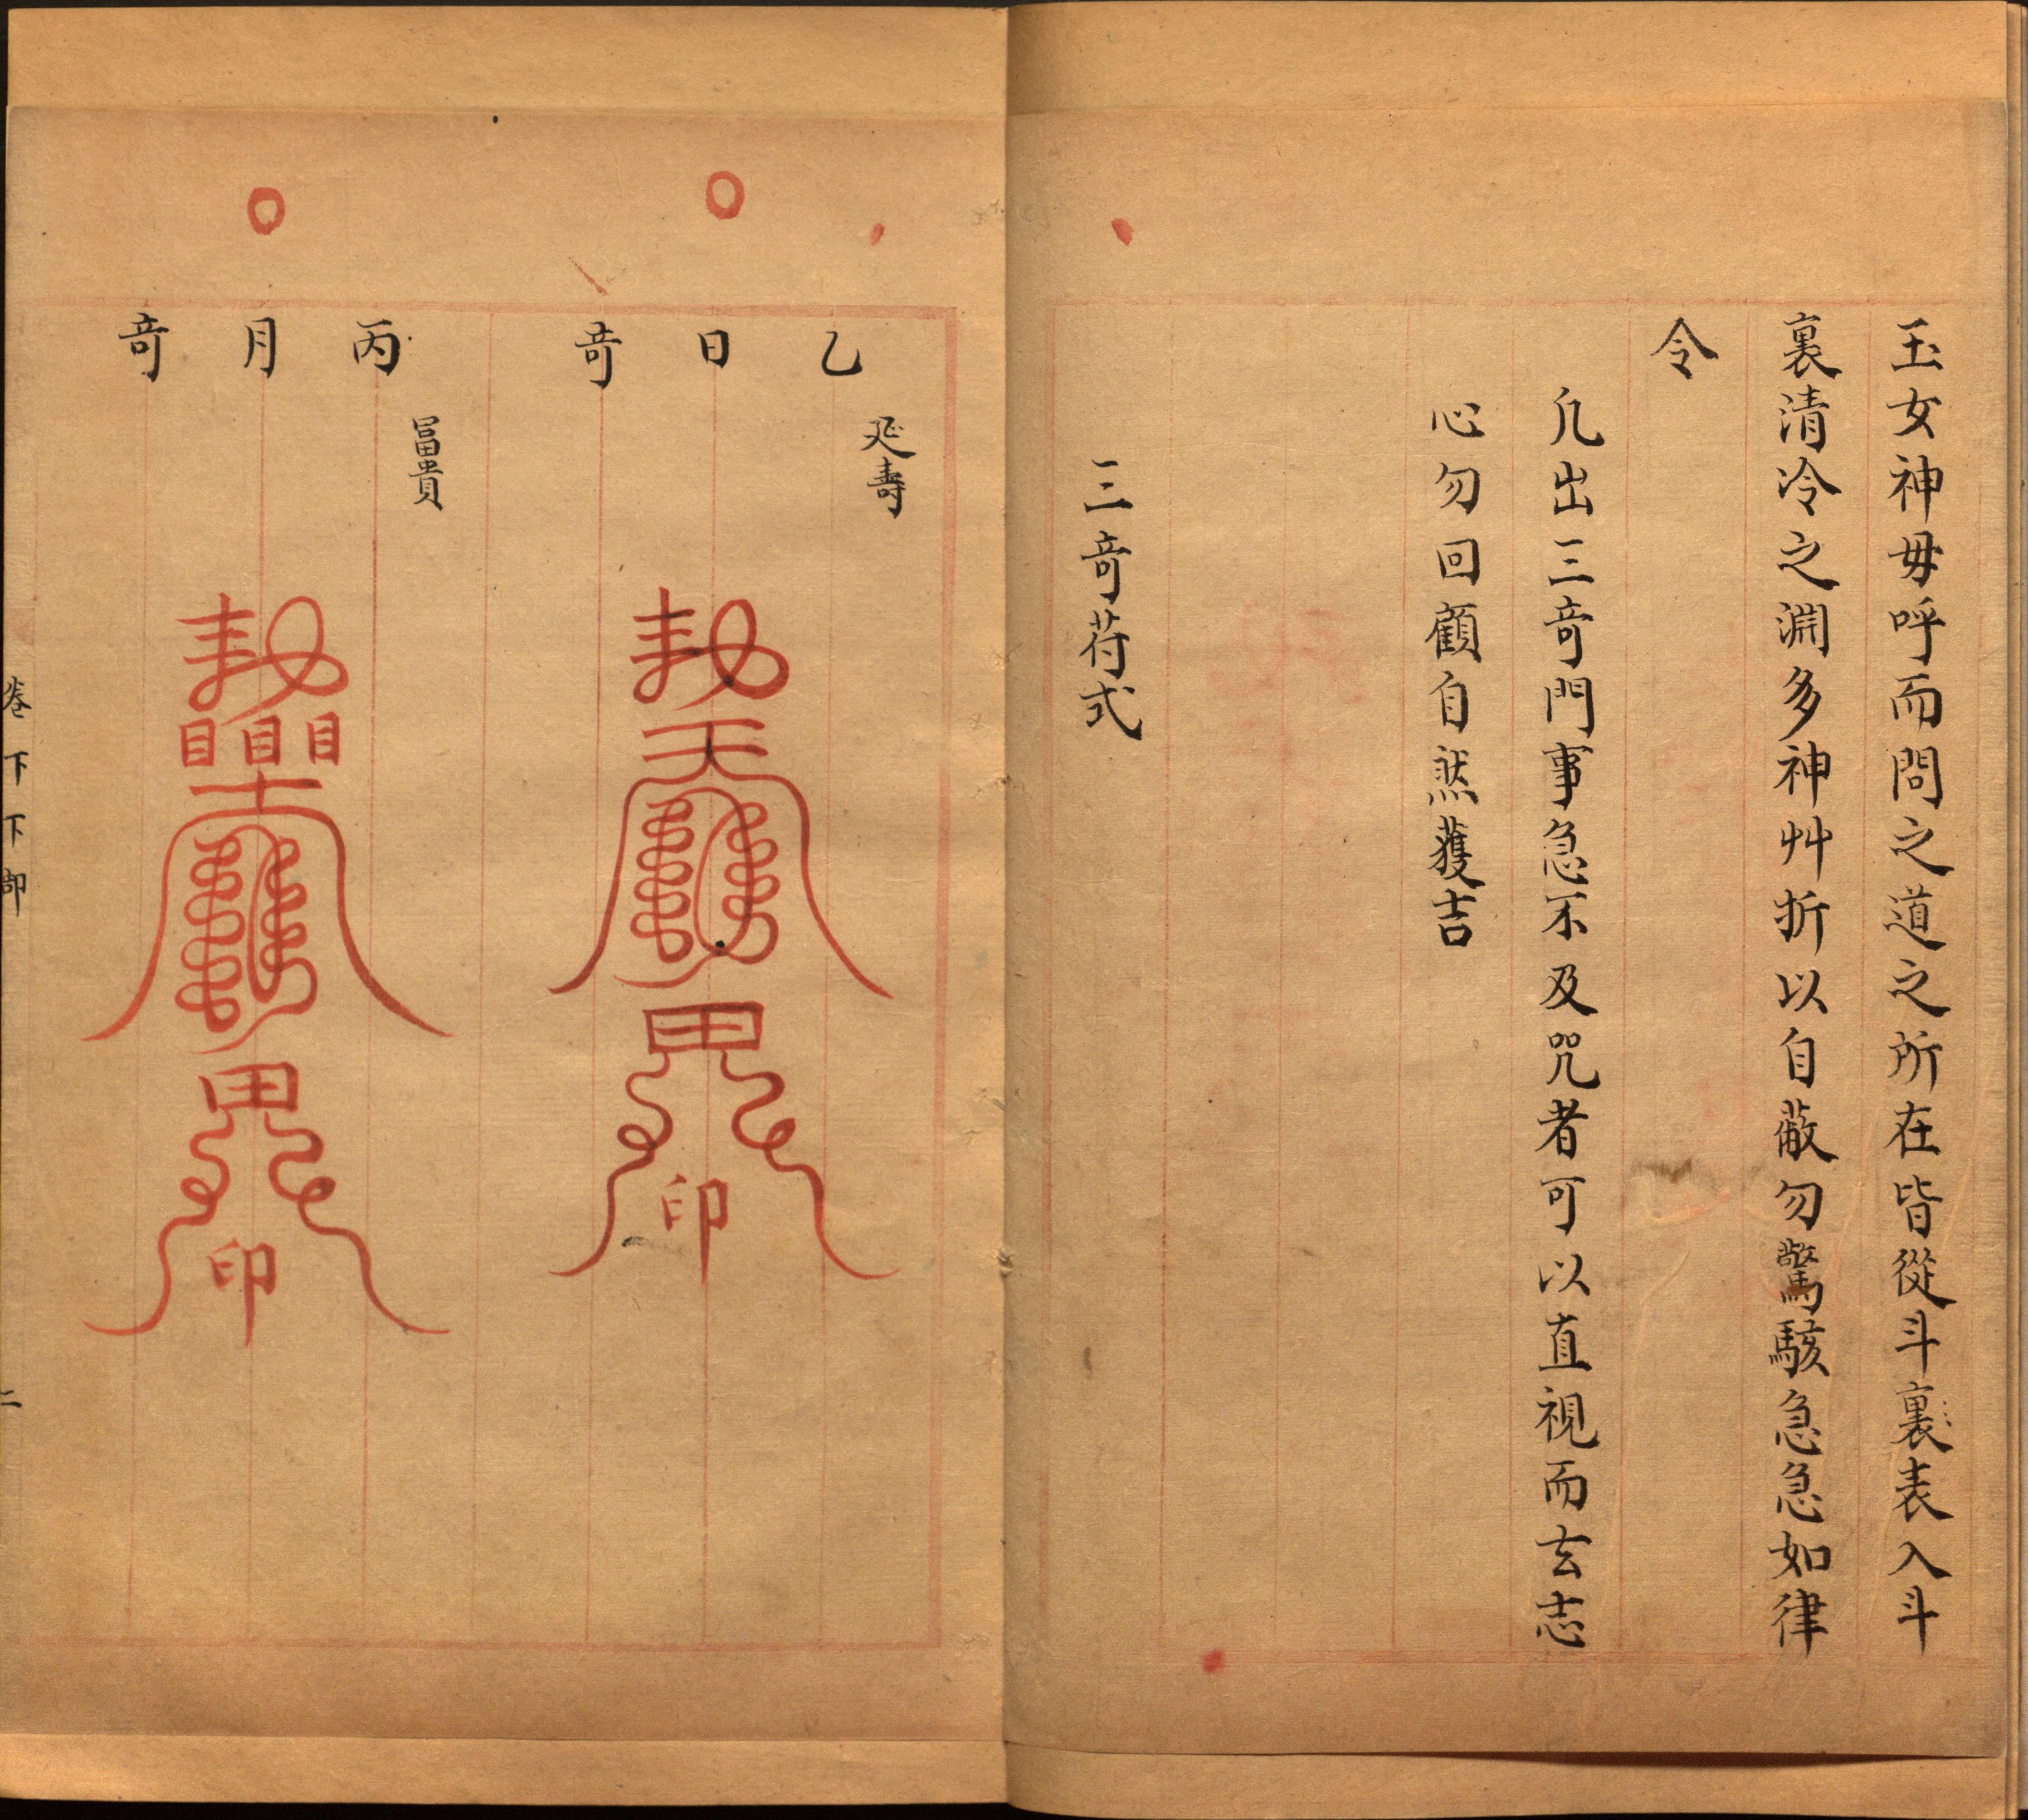 玉女神毋呼而問之道之所在皆從斗裏表入斗
裏清冷之淵多神艸折以自蔽勿驚駭急急如律
令
凢出三竒門事急不及咒者可以直視而去志
心勿回顧自然獲吉
三竒苻式
乙日竒
延壽
天
甲
印
丙月竒
冨貴
甲
印
卷下下部
二